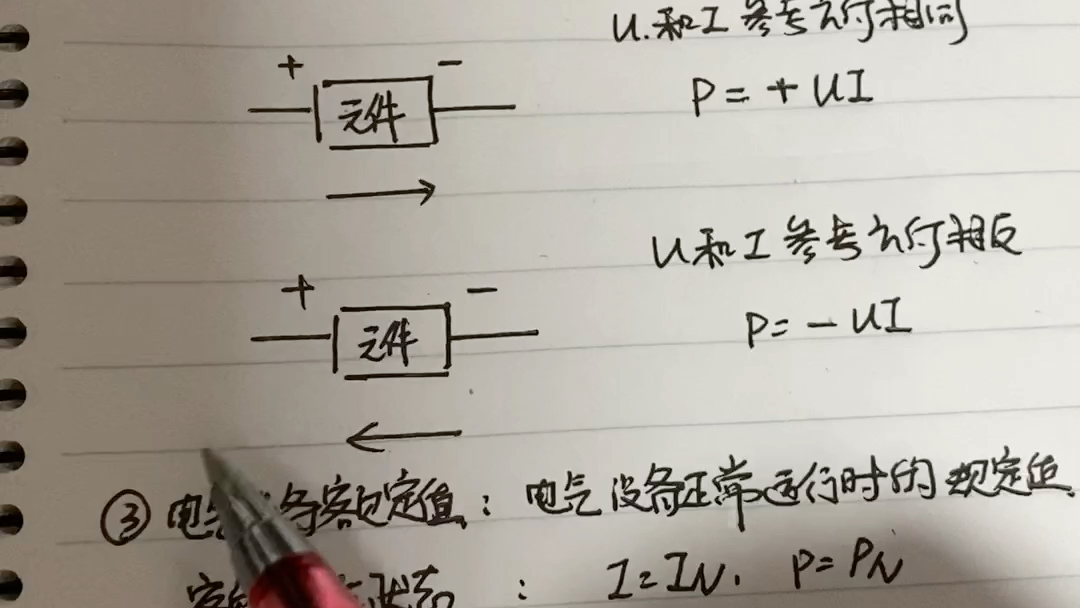 U.和I参考方向相同
+ −
元件
P=+UI
U和I参考方向相反
+ −
元件
P=−UI
③电气设备额定值：电气设备正常运行时的规定值.
状态：I=IN. P=PN